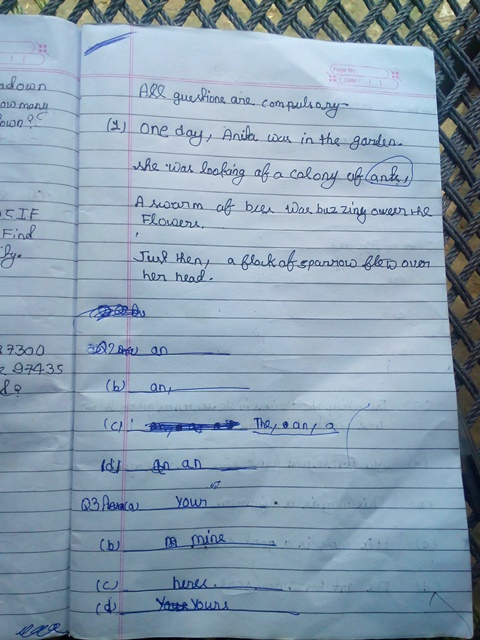 adown
ow many
down?
SIF
Find
ly.
87300
97435
&?
Page No.
Date
All questions are compulsory-
(1) One day, Anita was in the garden.
she was looking of a colony of ants,
A swarm of bees was buzzing oweer the
Flowers.
Just then, a flock of sparrow flew over
her head.
Q2 Ans(a) an
(b) an,
(c) The, an, a
(d) an
Q3 Ans(a) Your
(b) mine
(c) heres
(d) Yours